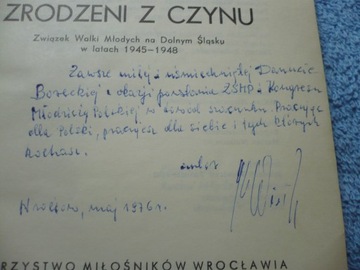 ZRODZENI Z CZYNU
Związek Walki Młodych na Dolnym Śląsku
w latach 1945-1948
Zawsze miłej i uśmiechniętej Danucie
Boreckiej z okazji powstania ZSMP i Kongresu
Młodzieży Polskiej w dowód szacunku. Pracując
dla Polski, pracujesz dla siebie i tych których
kochasz.
autor
Wrocław, maj 1976 r.
RZYSTWO MIŁOŚNIKÓW WROCŁAWIA